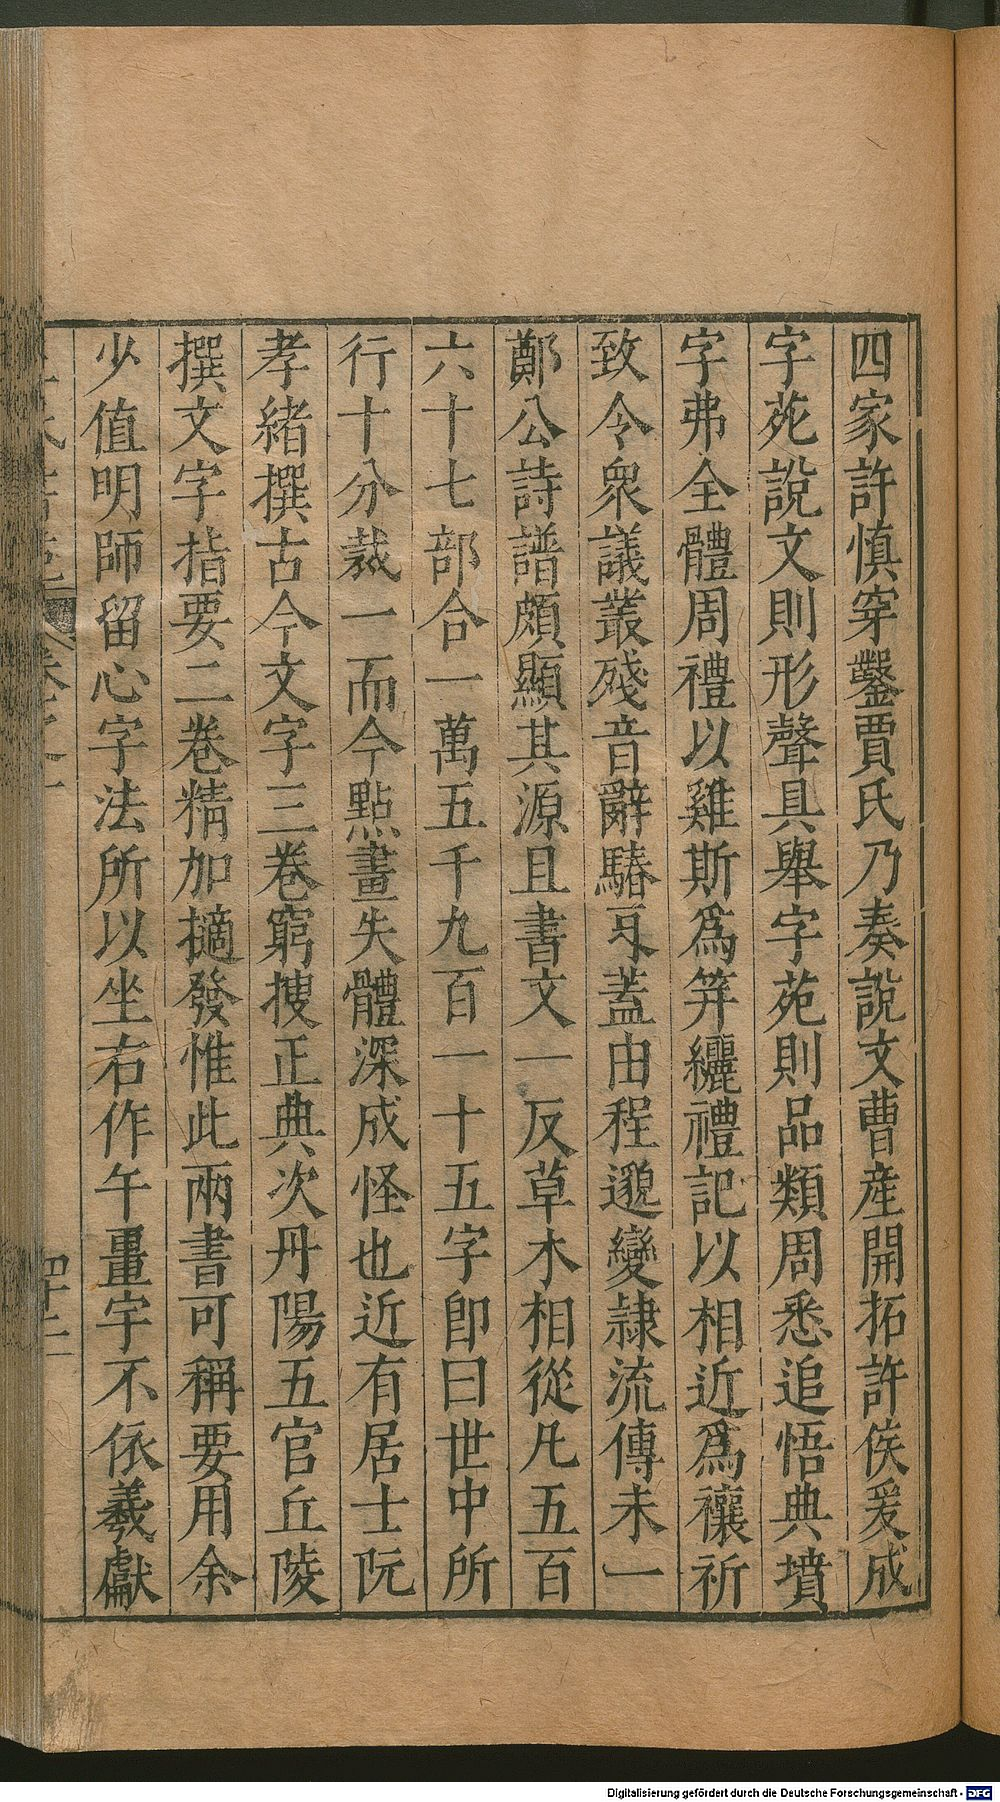 四家許慎穿鑿賈氏乃奏說文曹產開拓許侯爰成
字苑說文則形聲具舉字苑則品類周悉追悟典墳
字弗全體周禮以雞斯為笄纚禮記以相近爲禳祈
致令衆議叢殘音辭騞互蓋由程邈變隸流傳未一
鄭公詩譜頗顯其源且書文一反草木相從凡五百
六十七部合一萬五千九百一十五字即曰世中所
行十分裁一而今點畫失體深成怪也近有居士阮
孝緒撰古今文字三卷窮搜正典次丹陽五官丘陵
撰文字指要二卷精加擿發惟此兩書可稱要用余
少值明師留心字法所以坐右作午畫宇不依羲獻
卷之一
四十二
Digitalisierung gefördert durch die Deutsche Forschungsgemeinschaft - DFG